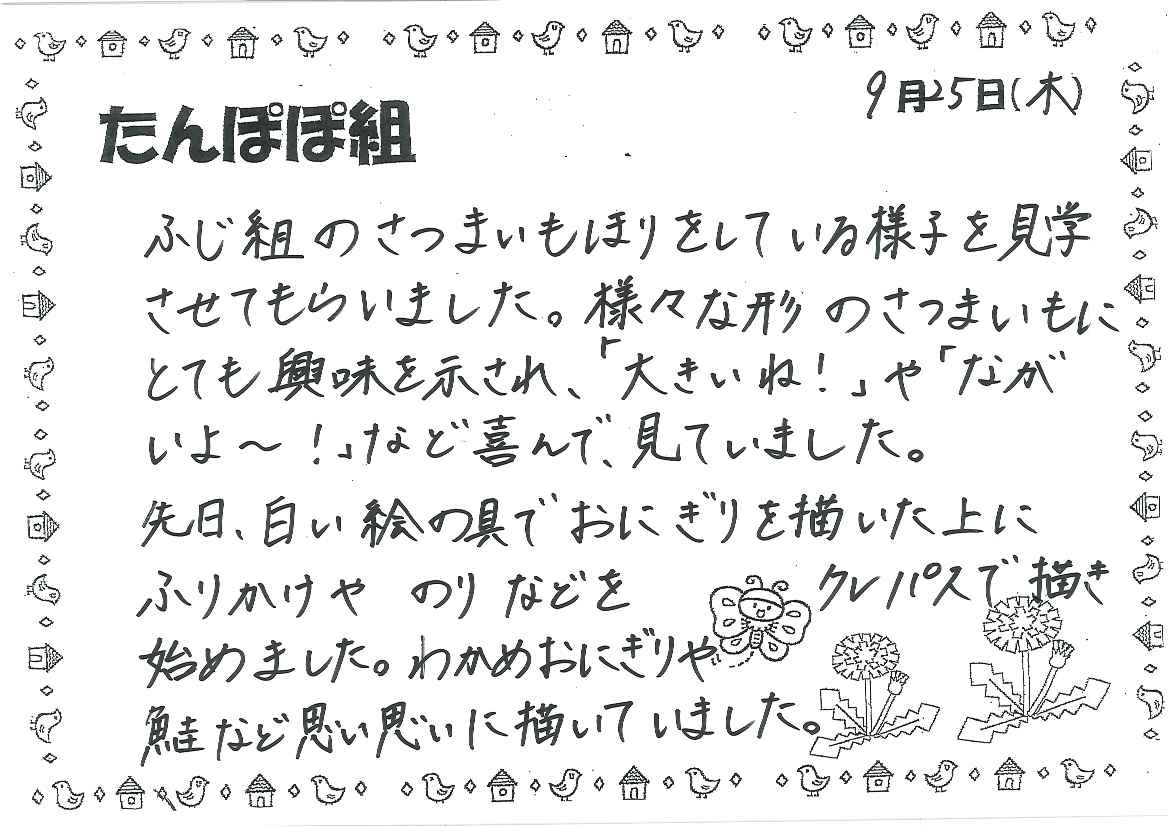 9月25日(木)
たんぽぽ組
ふじ組のさつまいもほりをしている様子を見学
させてもらいました。様々な形のさつまいもに
とても興味を示され、「大きいね!」や「なが
いよ〜!」など喜んで、見ていました。
先日、白い絵の具でおにぎりを描いた上に
ふりかけや のり などを クレパスで描き
始めました。わかめおにぎりや
鮭など思い思いに描いていました。